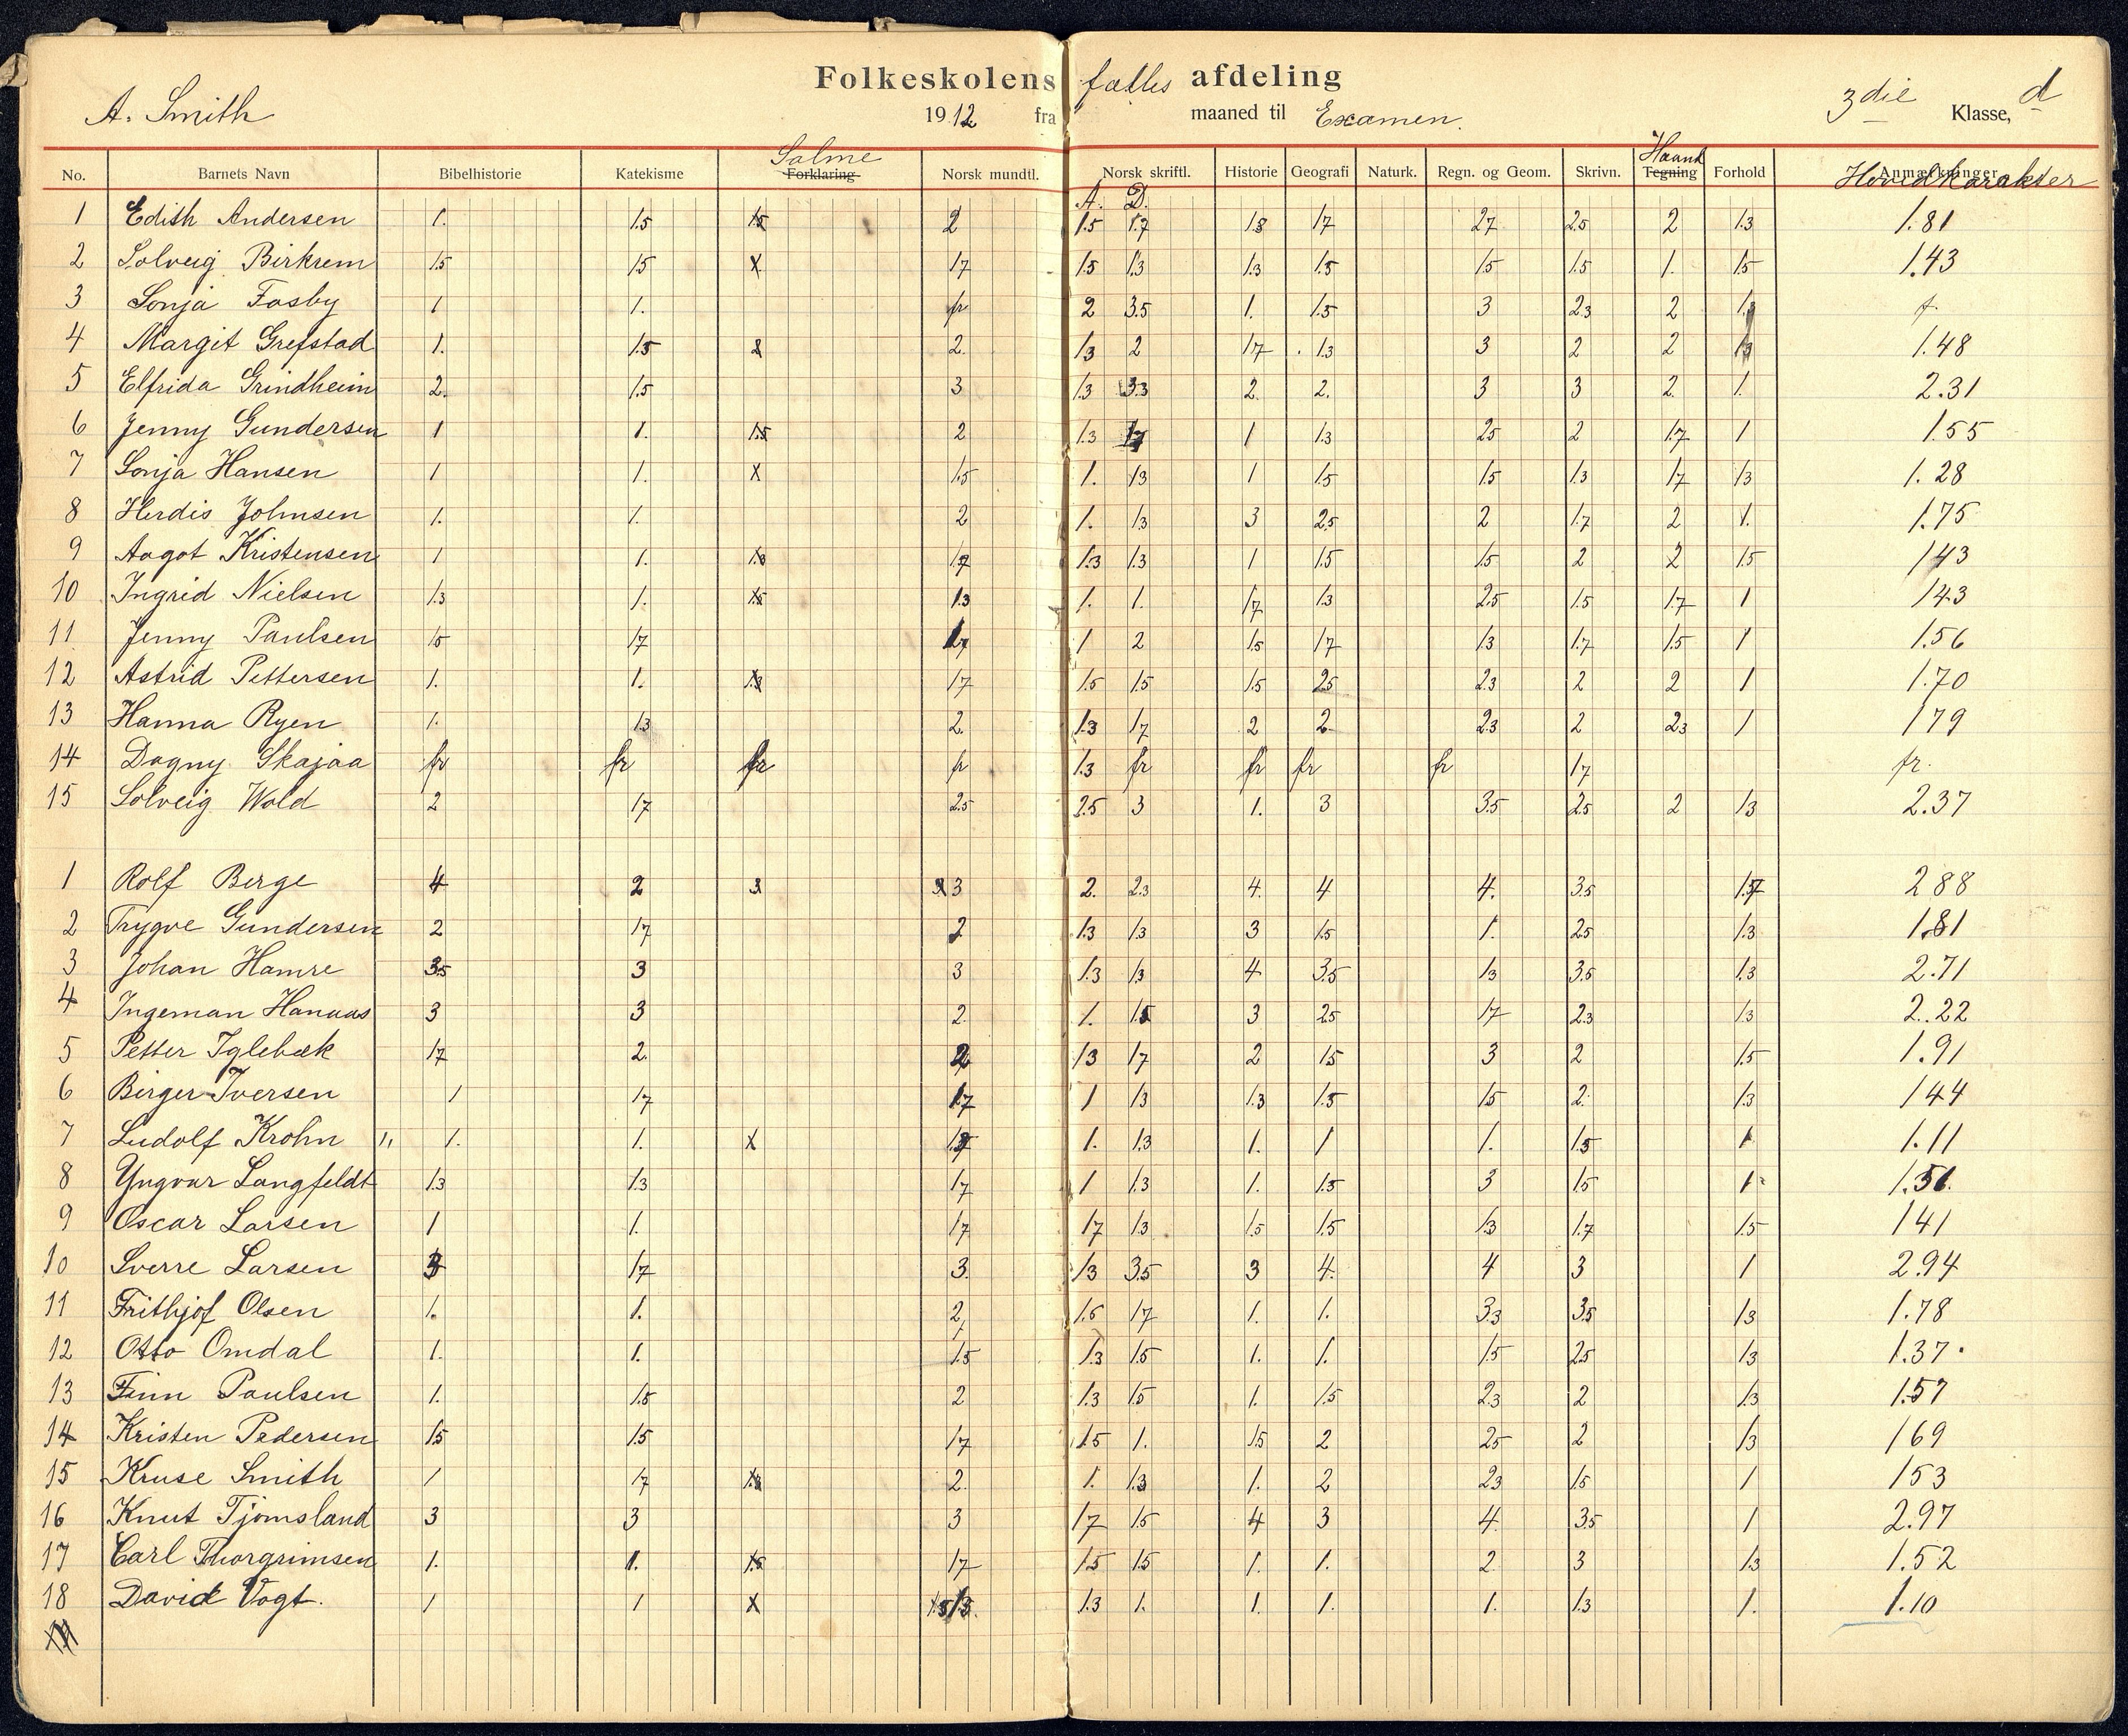 Folkeskolens fælles afdeling
A. Smith 1912 fra maaned til Examen. 3die Klasse, d
No. Barnets Navn Bibelhistorie Katekisme Forklaring Salme Norsk mundtl. Norsk skriftl. Historie Geografi Naturk. Regn. og Geom. Skrivn. Tegning Haand Forhold Hovedkarakter
A. D.
1 Edith Andersen 1. 1.5 2 1.5 1.7 1.8 1.7 27 25 2 1.3 1.81
2 Solveig Birkrem 1.5 1.5 x 1.7 1.5 1.3 1.3 1.5 1.5 1.5 1. 1.5 1.43
3 Sonja Fosby 1 1. fr 2 3.5 1. 1.5 3 2.3 2 f.
4 Margit Grefstad 1. 1.5 2. 1.3 2 1.7 1.3 3 2 2 1.48
5 Elfrida Grindheim 2. 1.5 3 1.3 3.3 2. 2. 3 3 2. 1. 2.31
6 Jenny Gundersen 1 1. 1.5 2 1.3 1.7 1 1.3 25 2 1.7 1 1.55
7 Sonja Hansen 1 1. x 1.5 1. 1.3 1 1.5 1.5 1.3 1.7 1.3 1.28
8 Herdis Johnsen 1. 1. 2 1. 1.3 3 2.5 2 1.7 2 1. 1.75
9 Aagot Kristensen 1 1. 1.7 1.3 1.3 1 1.5 1.5 2 2 1.5 143
10 Ingrid Nielsen 1.3 1. 1.5 1.3 1. 1. 1.7 1.3 2.5 1.5 1.7 1 143
11 Jenny Paulsen 1.5 1.7 1.7 1 2 1.5 1.7 1.3 1.7 1.5 1 1.56
12 Astrid Pettersen 1. 1. 1.3 1.7 1.5 1.5 1.5 2.5 2.3 2 2 1 1.70
13 Hanna Ryen 1. 1.3 2. 1.3 1.7 2 2 2.3 2 2.3 1 179
14 Dagny Skajaa fr fr fr fr 1.3 fr fr fr fr 1.7 fr.
15 Solveig Wold 2 1.7 2.5 2.5 3 1. 3 3.5 2.5 2 1.3 2.37
1 Rolf Berge 4 2 3 3 2. 2.3 4. 4 4. 3.5 2 88
2 Trygve Gundersen 2 1.7 2 1.3 1.3 3 1.5 1. 2.5 1.3 1.81
3 Johan Hamre 3.5 3 3 1.3 1.3 4 3.5 1.3 3.5 1.3 2.71
4 Ingeman Hanaas 3 3 2. 1. 1.5 3 2.5 1.7 2.3 1.3 2.22
5 Petter Iglebæk 1.7 2. 2 1.3 1.7 2 1.5 3 2 1.5 1.91
6 Birger Iversen 1 1.7 1.7 1 1.3 1.3 1.5 1.5 2. 1.3 144
7 Ludolf Krohn " 1. 1. x 1. 1.3 1. 1 1. 1.5 1 1.11
8 Yngvar Langfeldt 1.3 1.3 1.7 1 1.3 1. 1.5 3 1.5 1 1.51.
9 Oscar Larsen 1 1. 1.7 1.7 1.3 1.5 1.5 1.3 1.7 1.5 141
10 Sverre Larsen 3 1.7 3. 1.3 3.5 3 4. 4 3 1 2.94
11 Frithjof Olsen 1. 1. 2 1.5 1.7 1. 1. 3.3 3.5 1.3 1.78
12 Otto Omdal 1. 1. 1.5 1.3 1.5 1. 1. 1.5 2.5 1.3 1.37.
13 Finn Paulsen 1. 1.5 2 1.3 1.5 1. 1.5 2.3 2 1.3 1.57
14 Kristen Pedersen 1.5 1.5 1.7 1.5 1. 1.5 2 2.5 2 1.3 169
15 Kruse Smith 1 1.7 1.3 2. 1. 1.3 1. 2 2.3 1.5 1 153
16 Knut Tjomsland 3 3 3 1.7 1.5 4 3 4. 3.5 1 2.97
17 Carl Thorgrimsen 1. 1. 1.5 1.7 1.5 1.5 1. 1. 2. 3 1.3 1.52
18 David Vogt. 1 1 x 1.5 1.3. 1.3 1. 1. 1. 1. 1.3 1. 1.10